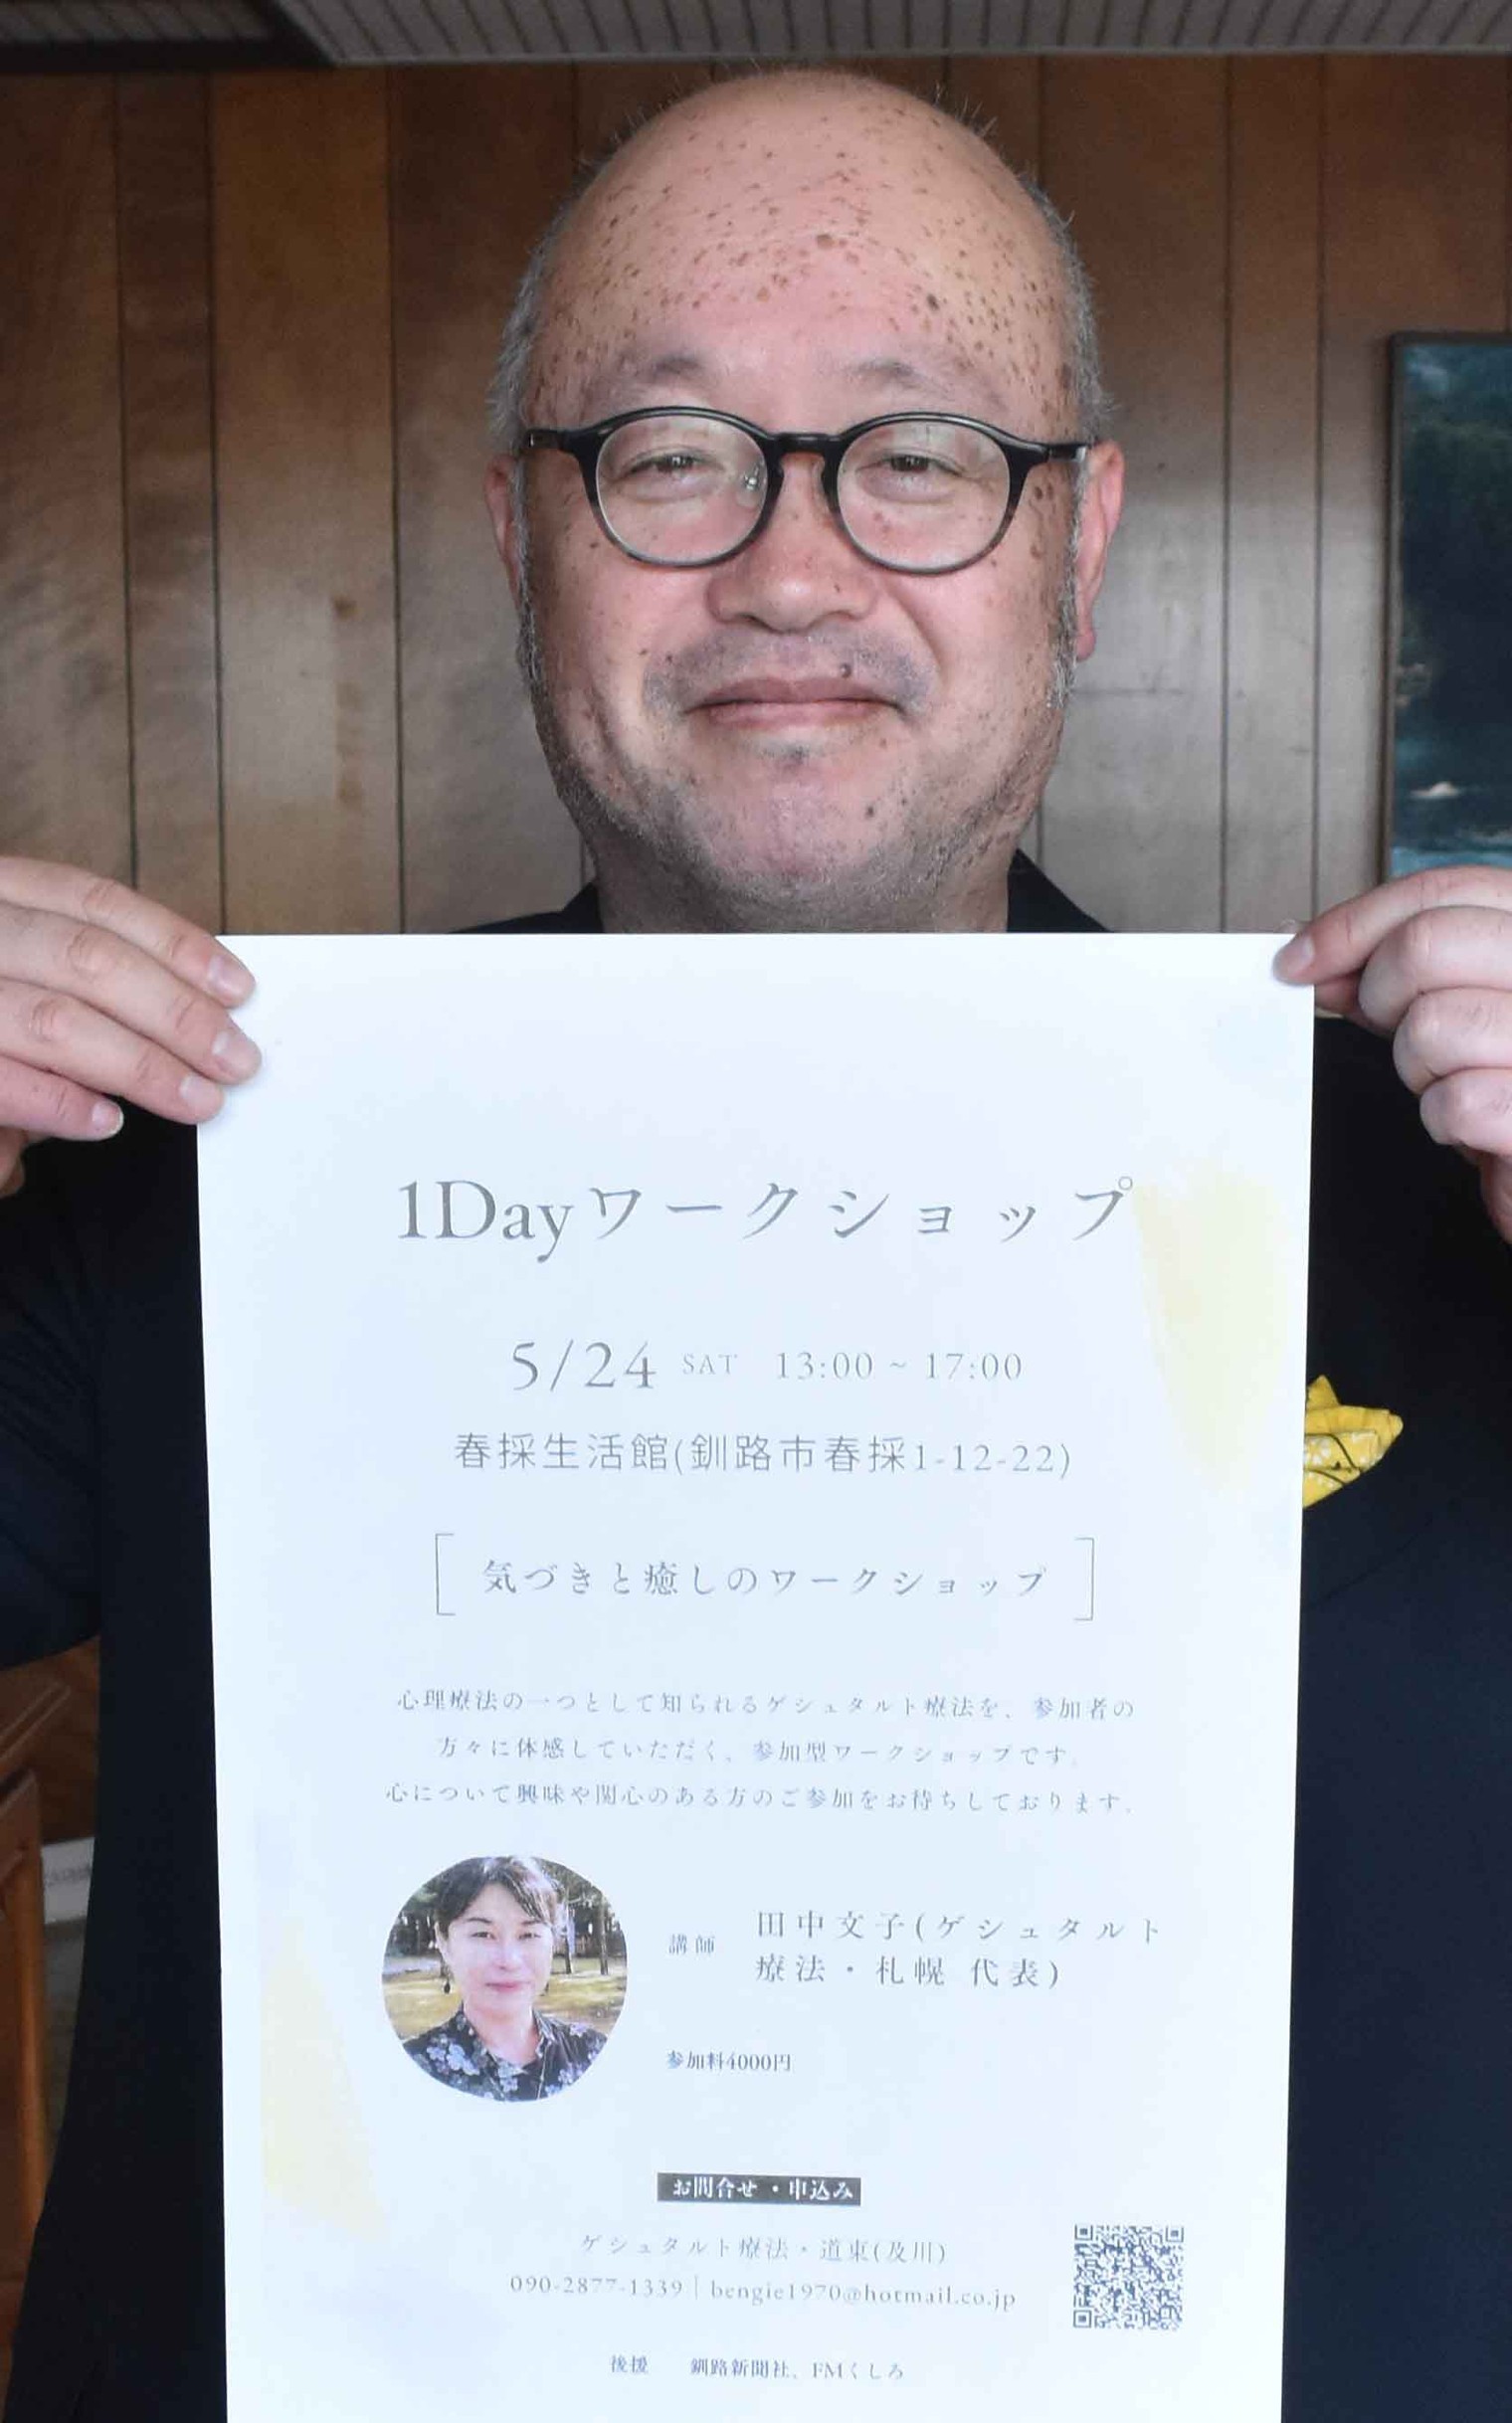 1Dayワークショップ
5/24 SAT 13:00 ~ 17:00
春採生活館(釧路市春採1-12-22)
気づきと癒しのワークショップ
心理療法の一つとして知られるゲシュタルト療法を、参加者の
方々に体感していただく、参加型ワークショップです。
心について興味や関心のある方のご参加をお待ちしております。
講師 田中文子(ゲシュタルト
療法・札幌 代表)
参加料4000円
お問合せ・申込み
ゲシュタルト療法・道東(及川)
090-2877-1339 | bengie1970@hotmail.co.jp
後援 釧路新聞社、FMくしろ